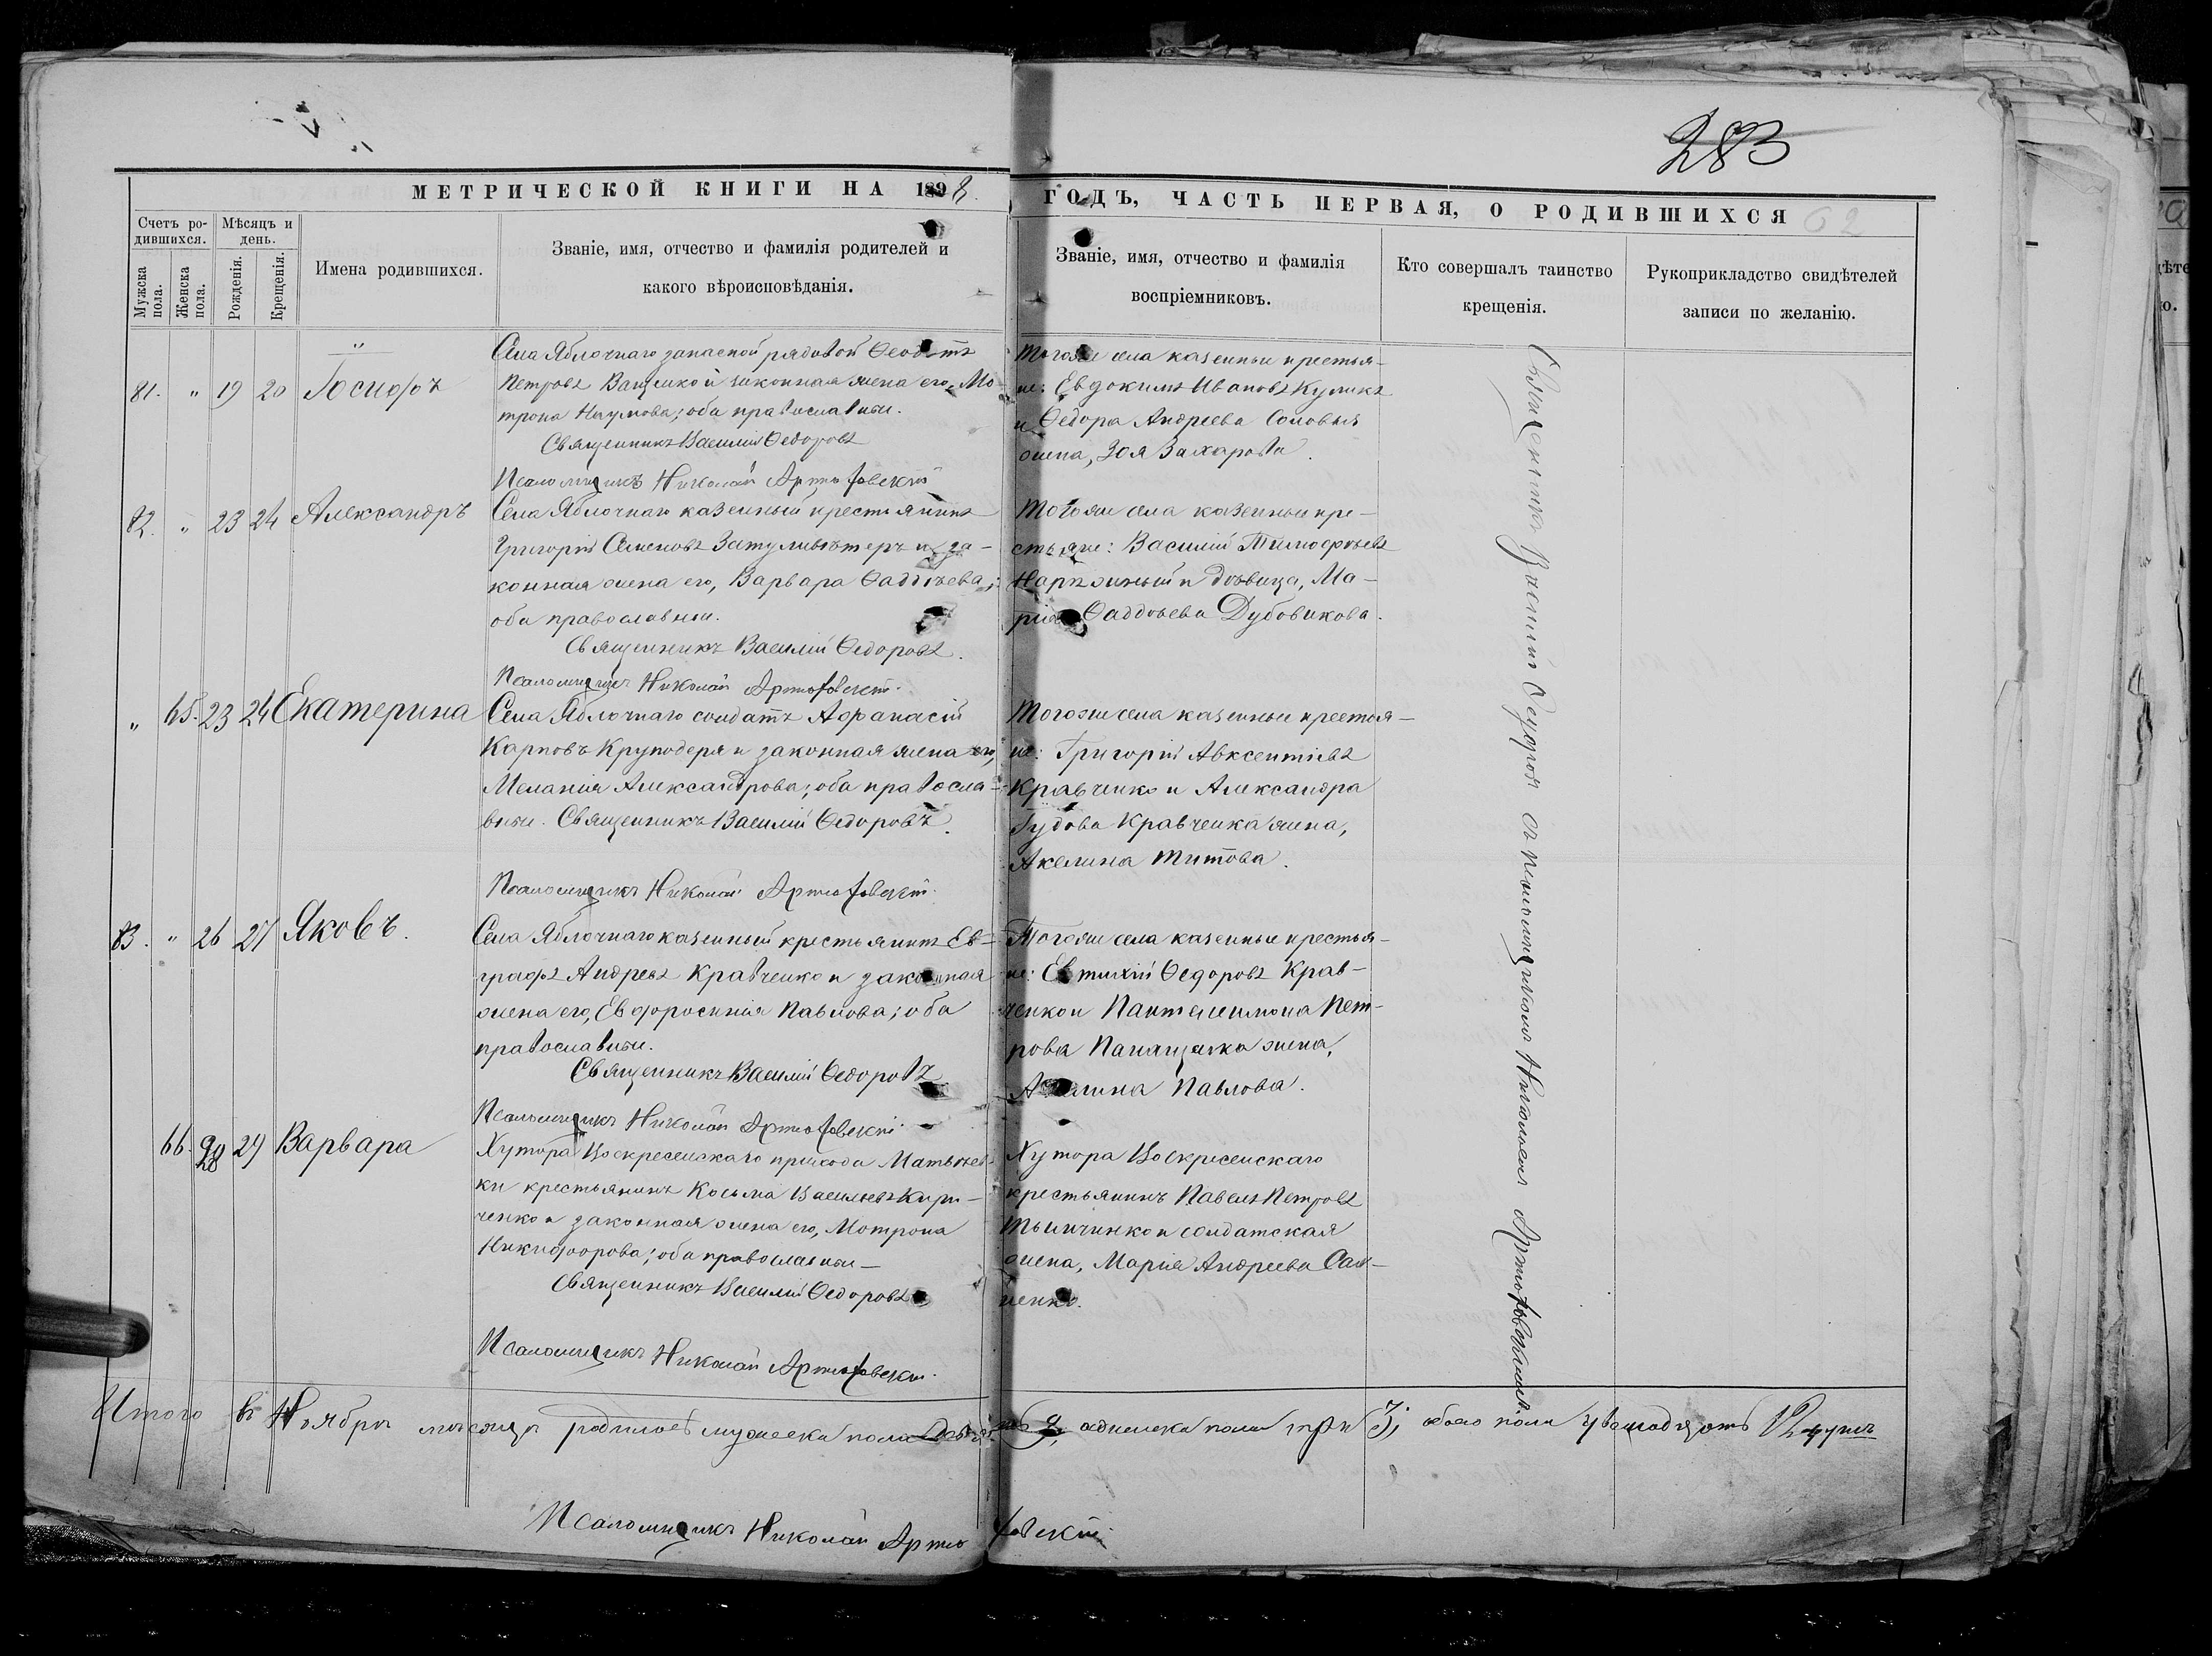 283
МЕТРИЧЕСКОЙ КНИГИ НА 1898 ГОДЪ, ЧАСТЬ ПЕРВАЯ, О РОДИВШИХСЯ
62
Счетъ ро-
дившихся.
Мужска
пола.
Женска
пола.
Мѣсяцъ и
день.
Рожденія.
Крещенія.
Имена родившихся.
Званіе, имя, отчество и фамилія родителей и
какого вѣроисповѣданія.
Званіе, имя, отчество и фамилія
воспріемниковъ.
Кто совершалъ таинство
крещенія.
Рукоприкладство свидѣтелей
записи по желанію.
81. " 19 20 Іосифъ
Села Яблочнаго запасной рядовой Ѳеодотъ
Петровъ Ващенко и законная жена его, Мо-
трона Наумова; оба православные.
Священникъ Василій Ѳедоровъ
Псаломщикъ Николай Артюховскій
Тогоже села казенные крестья-
не: Евдокимъ Ивановъ Куликъ
и Ѳедора Андреева Соловья
жена, Зоя Захарова.
82. " 23 24 Александръ
Села Яблочнаго казенный крестьянинъ
Григорій Семеновъ Затуливѣтеръ и за-
конная жена его, Варвара Ѳаддѣева;
оба православные.
Священникъ Василій Ѳедоровъ.
Псаломщикъ Николай Артюховскій.
Тогоже села казенные кре-
стьяне: Василій Тимофѣевъ
Нарѣжный и дѣвица, Ма-
рія Ѳаддѣева Дубовикова.
" 65. 23 24 Екатерина
Села Яблочнаго солдатъ Афанасій
Карповъ Круподеря и законная жена его,
Меланія Александрова; оба правосла-
вные. Священникъ Василій Ѳедоровъ.
Псаломщикъ Николай Артюховскій.
Тогоже села казенные крестья-
не: Григорій Авксентіевъ
Кравченко и Александра
Гудова Кравченка жена,
Акелина Титова.
83. " 26 27 Яковъ.
Села Яблочнаго казенный крестьянинъ Ев-
графъ Андреевъ Кравченко и законная
жена его, Евфросинія Павлова; оба
православные.
Священникъ Василій Ѳедоровъ
Псаломщикъ Николай Артюховскій.
Тогоже села казенные крестья-
не: Евтихій Ѳедоровъ Крав-
ченко и Пантелеимона Пет-
рова жена,
Павлова.
66. 28 29 Варвара
Хутора Воскресенскаго прихода Матвѣев-
ки крестьянинъ Косьма Васильевъ Кири-
ченко и законная жена его, Мотрона
Никифорова; оба православные—
Священникъ Василій Ѳедоровъ
Псаломщикъ Николай Артюховскій.
Хутора Воскресенскаго
крестьянинъ Павелъ Петровъ
и солдатская
жена, Марія Андреева
ненко.
Священникъ Василій Ѳеодоровъ съ псаломщикомъ Николаемъ Артюховскимъ
Итого въ Ноябрѣ мѣсяцѣ родилось мужска пола девять 9, женска пола три 3; обоего пола двенадцать 12 душъ
Псаломщикъ Николай Артюховскій.